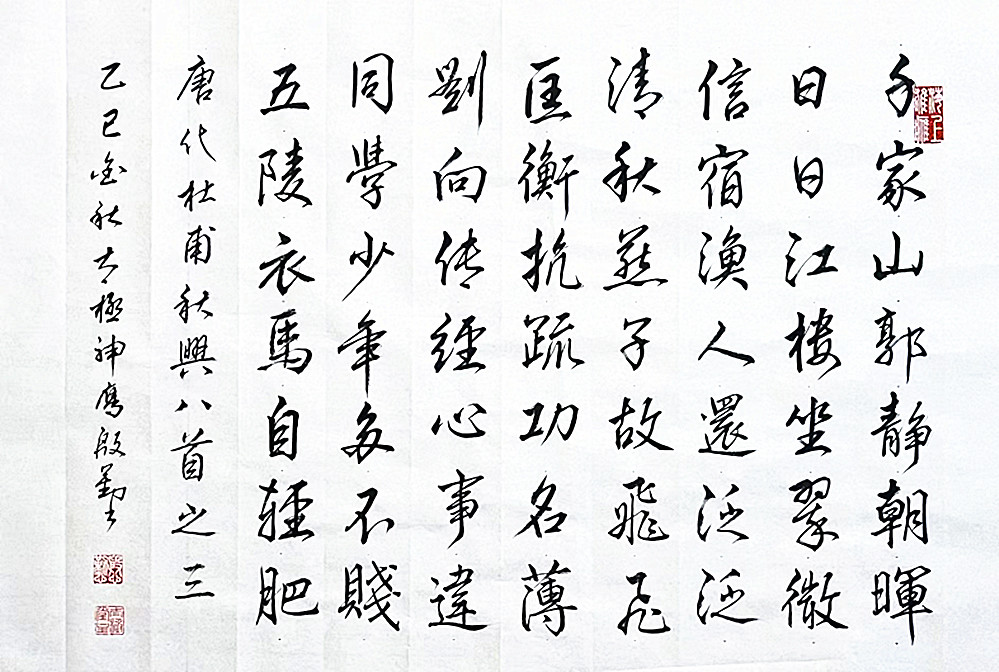 千家山郭静朝暉
日日江楼坐翠微
信宿漁人還泛泛
清秋燕子故飛飛
匡衡抗疏功名薄
劉向传經心事違
同學少年多不賤
五陵衣馬自輕肥
唐代杜甫秋興八首之三
乙巳金秋太極神鹰殷